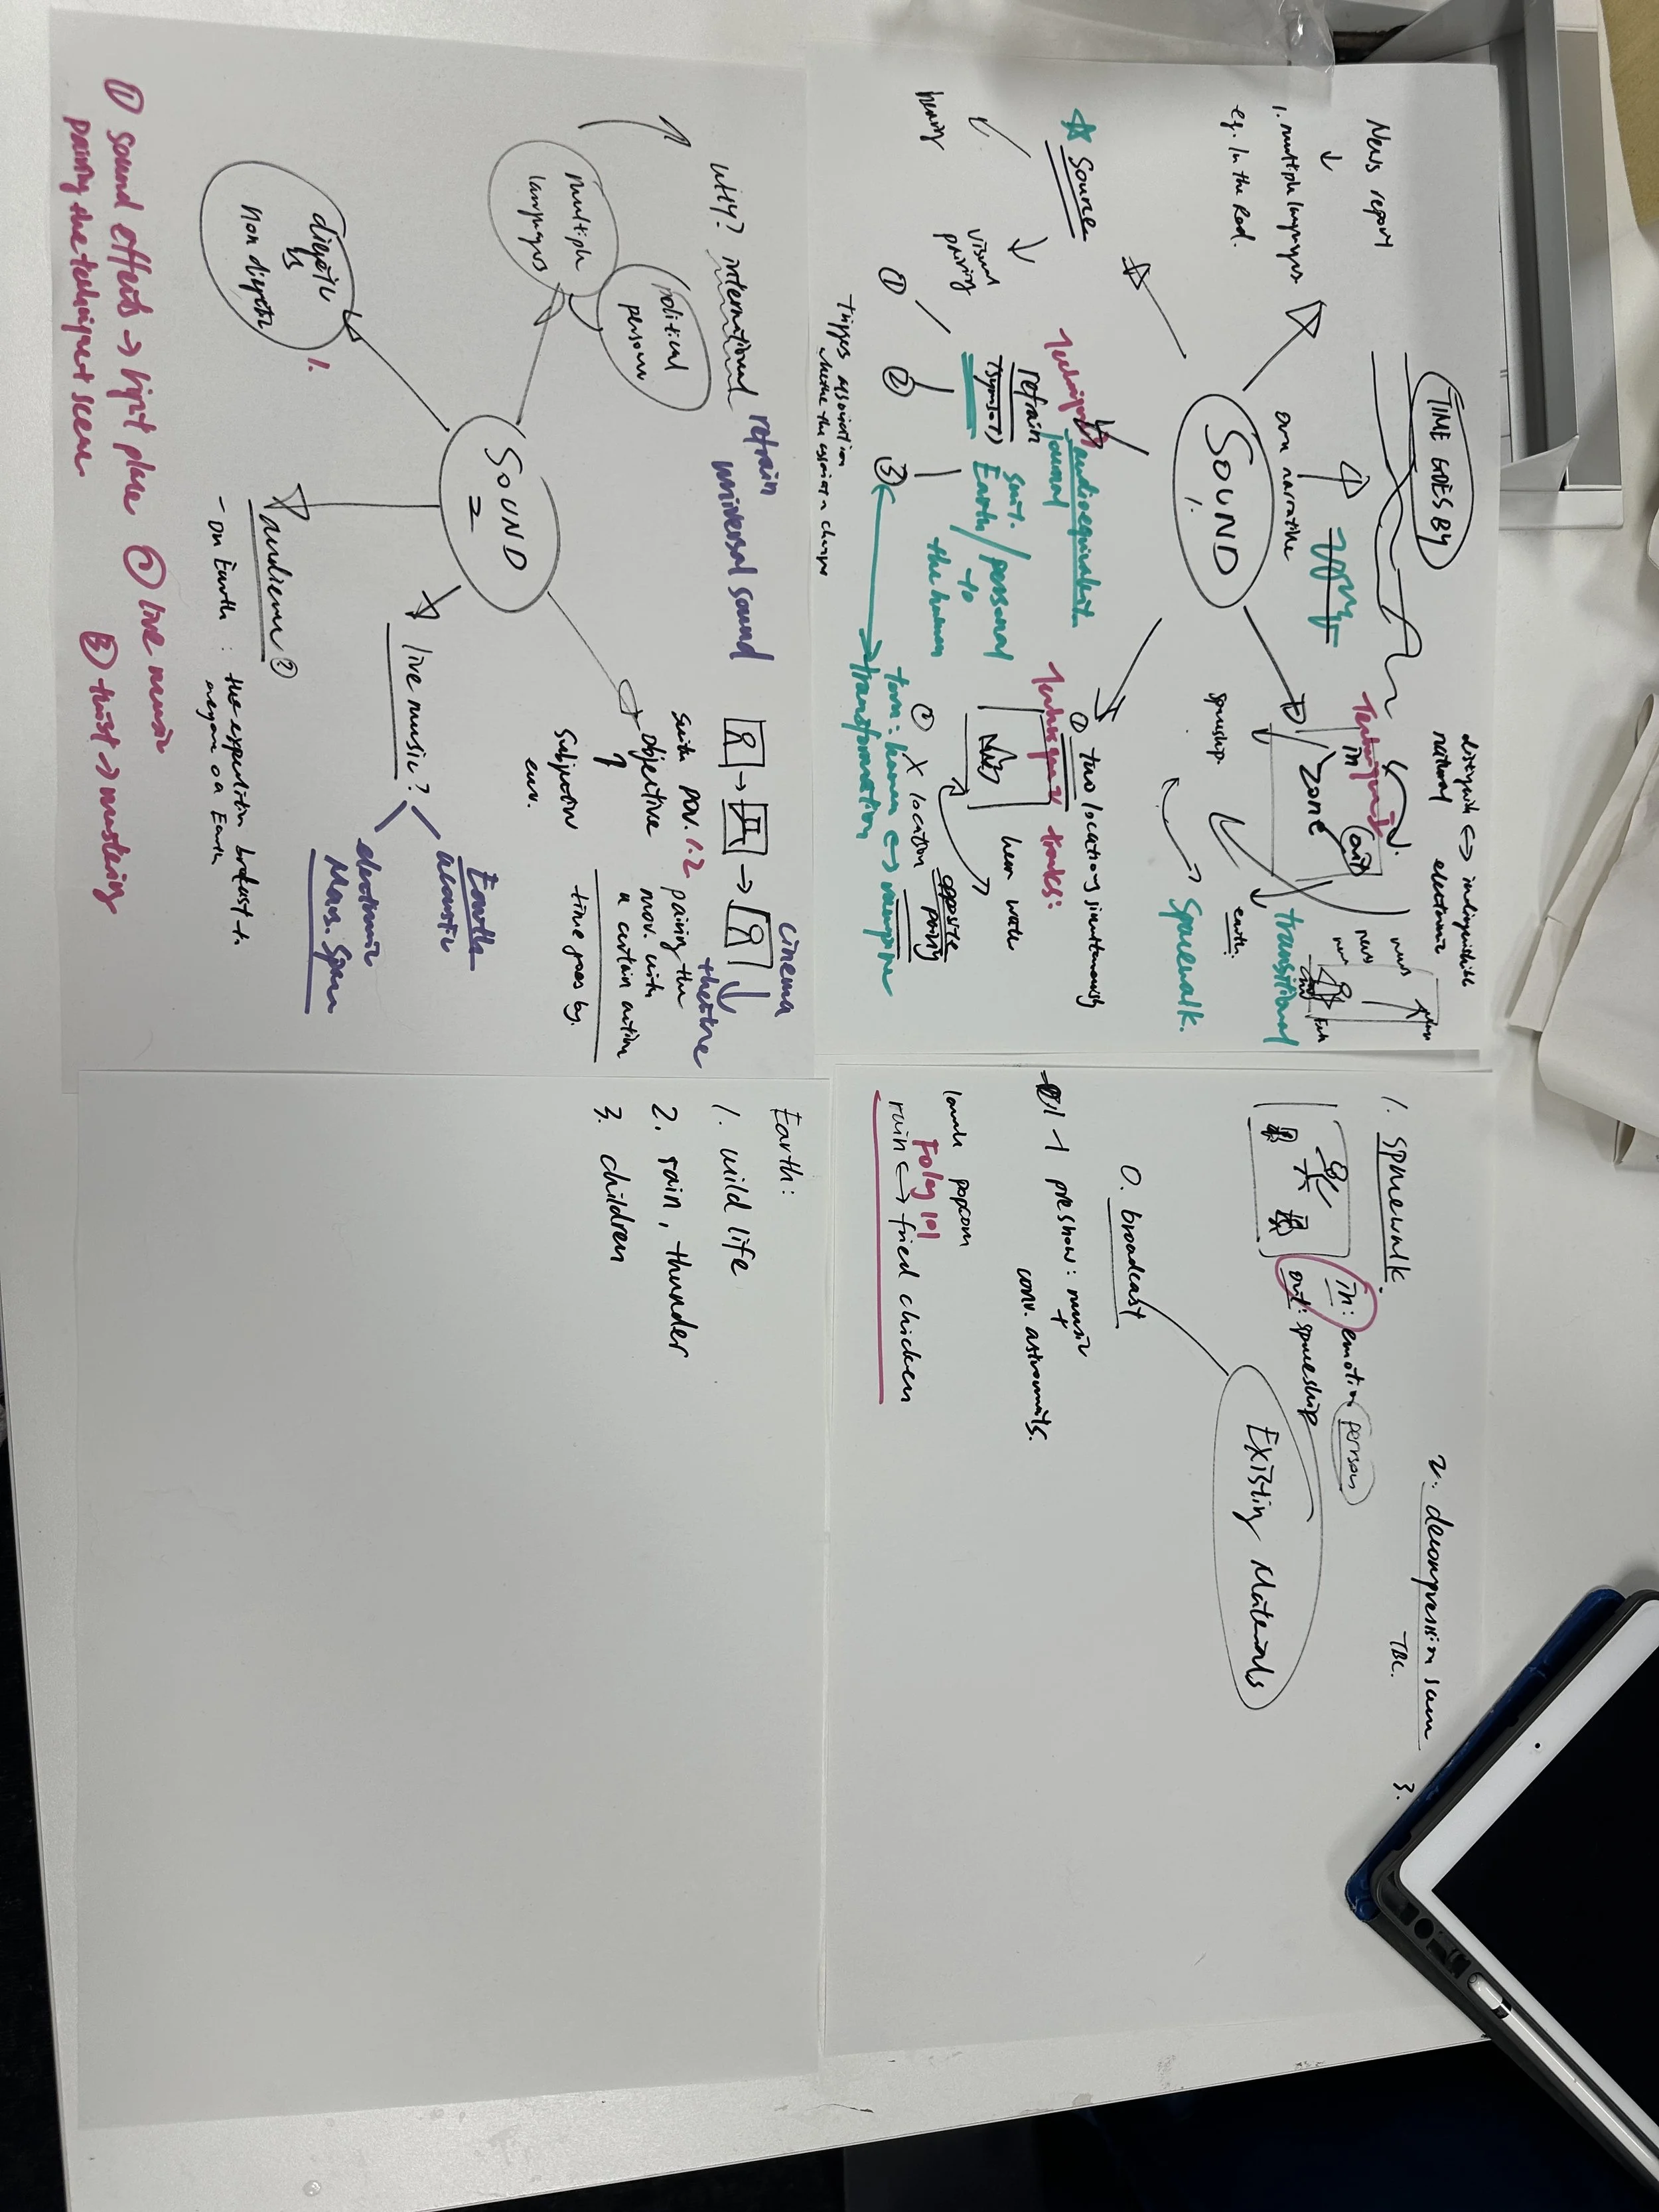 TIME GOES BY
News report
1. multiple languages
eg. In the Red.
SOUND
1.
own narrative
Source
hearing
visual
pairing
①
②
③
Technique 1
refrain
(symbol)
journal
audio equivalent
suit.
Earth / personal
to
the human
Triggers association
whether the association changes
transformation
torn: human ↔ vampire
Technique 2 tracks:
① two locations simultaneously
② X location
opposite
pairing
Technique 3
in / zone
out
spaceship.
earth.
transitional
Spacewalk.
distinguish ↔ indistinguishable
natural electronic
news
news
1. spacewalk.
in: emotion person
out: spaceship
2. decompression scene
TBC.
3.
Existing Materials
0. broadcast
preshow: music
+
conv. astronauts.
popcorn
Foley 101
rain ↔ fried chicken
WHY? international
refrain
universal sound
multiple
languages
political
persona
SOUND
2
diegetic
vs
non diegetic
1.
audience?
- on Earth : the expedition broadcast to
everyone on Earth
live music?
Earth
acoustic
electronic
Mars. Space
cinema
theatre
switch pov. 1.2
objective
Subjective
env.
pairing the
mov. with
a certain action
time goes by.
① sound effects → right place ② live music
pairing the technique + scene
③ twist → mastering
Earth:
1. wild life
2. rain, thunder
3. children